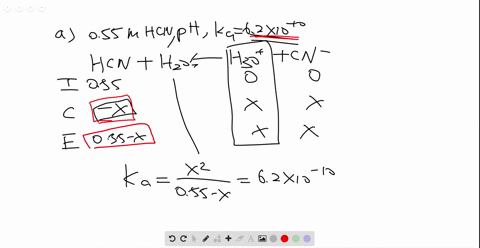 a) 0.55 M HCN, pH, Ka=6.2X10⁻¹⁰
HCN + H₂O ⇌ H₃O⁺ + CN⁻
I 0.55 0 0
C -X X X
E 0.55-X X X
Ka = X²/0.55-X = 6.2X10⁻¹⁰